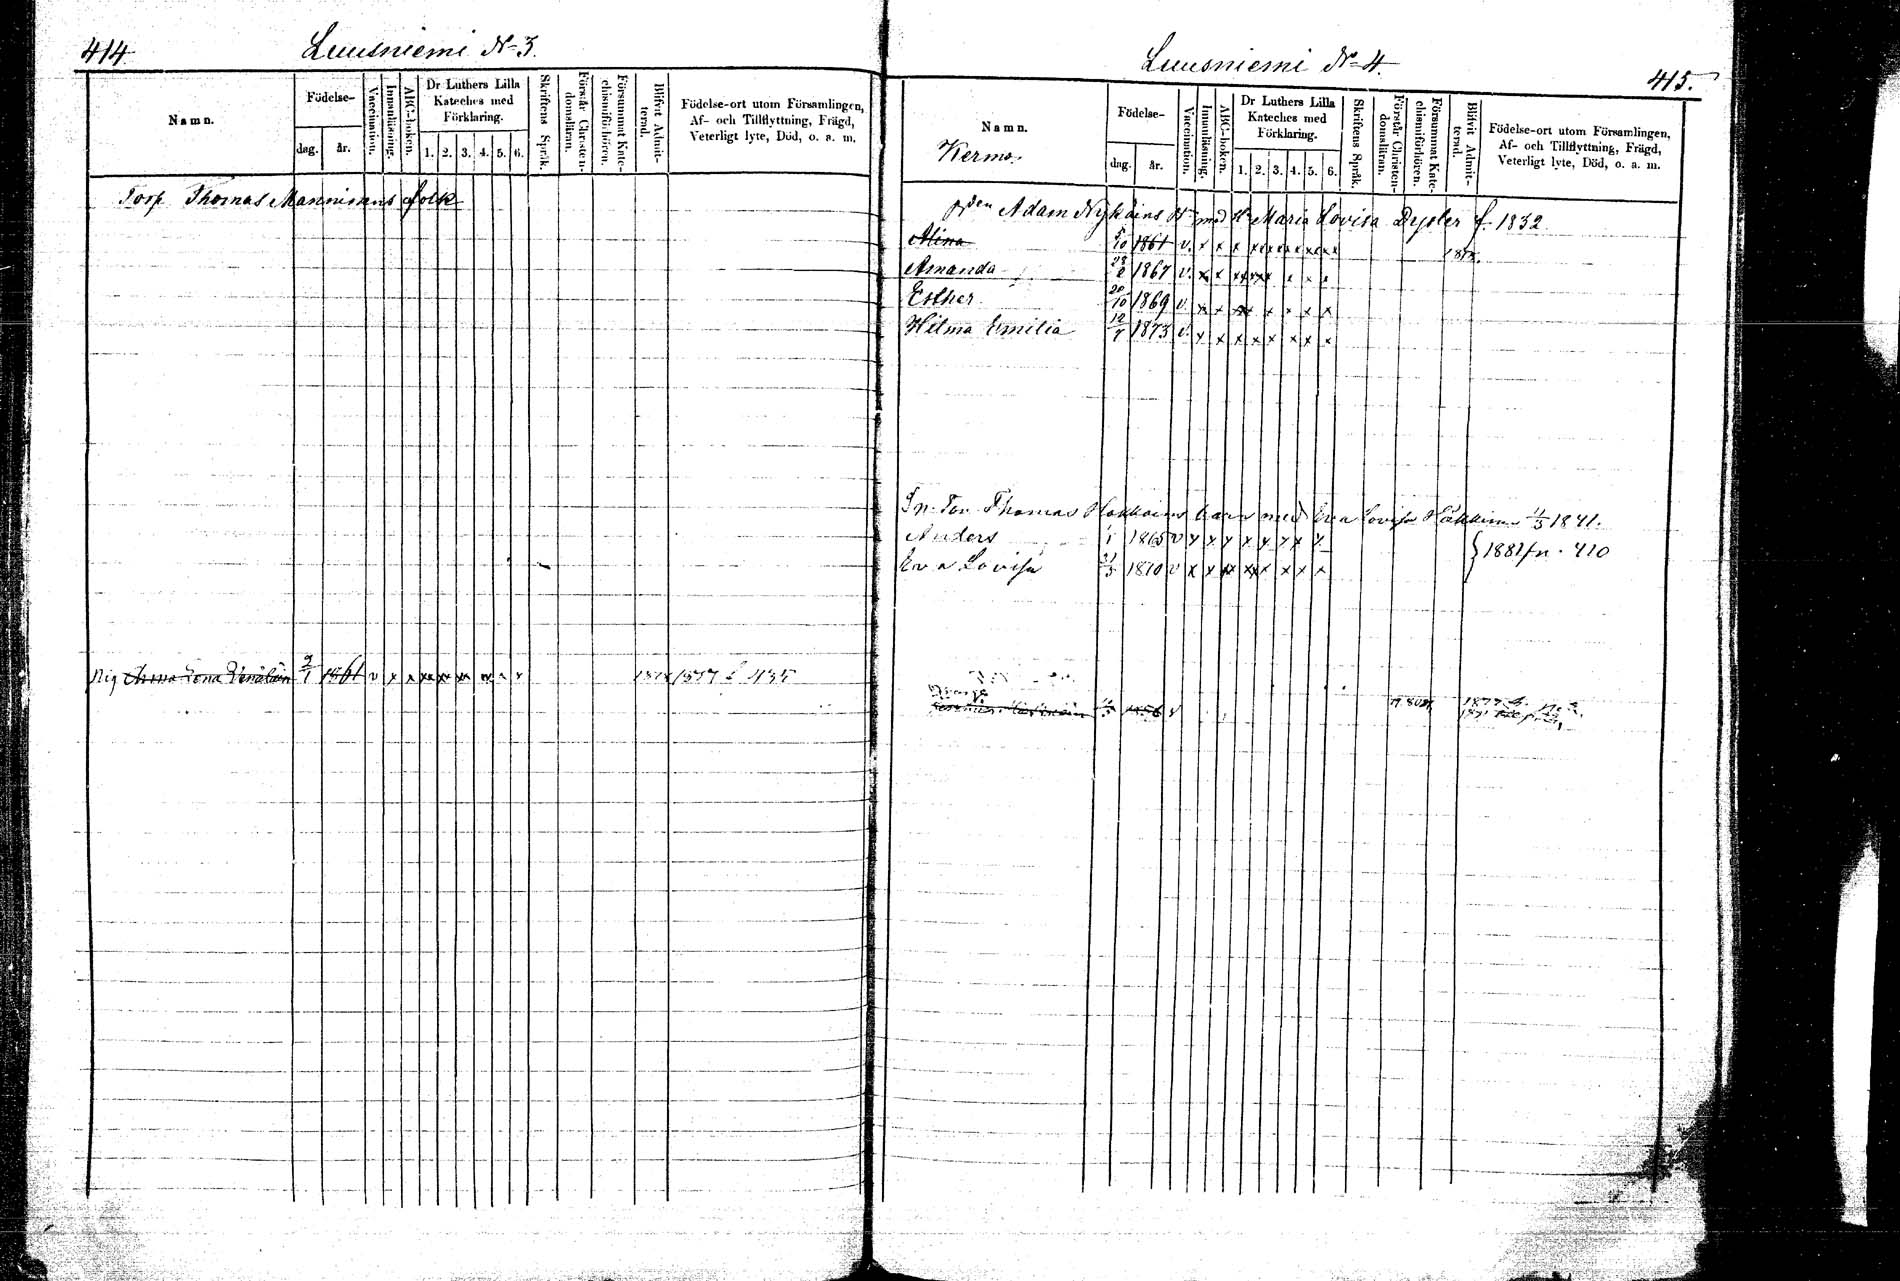 414. Luusniemi N=3.
Namn.
Födelse-
dag.
år.
Vaccination.
Innanläsning.
ABC-boken.
Dr Luthers Lilla
Kateches med
Förklaring.
1. 2. 3. 4. 5. 6.
Skriftens Språk.
Förstår Christen-
domsläran.
Försummat Kate-
chismiförhören.
Blifvit Admit-
terad.
Födelse-ort utom Församlingen,
Af- och Tillflyttning, Frägd,
Veterligt lyte, Död, o. a. m.
Torp Thomas Manninens folk
Pig Anna Lena 1861 v x x xx xx xx x x x 1878 1877 f 435
Luusniemi N=4. 415.
Namn.
Kermo.
Födelse-
dag.
år.
Vaccination.
Innanläsning.
ABC-boken.
Dr Luthers Lilla
Kateches med
Förklaring.
1. 2. 3. 4. 5. 6.
Skriftens Språk.
Förstår Christen-
domsläran.
Försummat Kate-
chismiförhören.
Blifvit Admit-
terad.
Födelse-ort utom Församlingen,
Af- och Tillflyttning, Frägd,
Veterligt lyte, Död, o. a. m.
Adam Nykäins med H. Maria Lovisa Dysler f. 1832
Alina 5/10 1861 v. x x x xx xx x x xx xx 1878.
Amanda 23/2 1867 v. x x xx xx x x x x
Esther 20/10 1869 v x x xx x x x x
Hilma Emilia 12/7 1873 v. x x x x x x x x
Thomas barn med Eva Lovisa 11/5 1841.
Anders 1865 v x x x x x x x x
Eva Lovisa 1870 v x x x xx x x x } 1881 fr. 410
1856 v